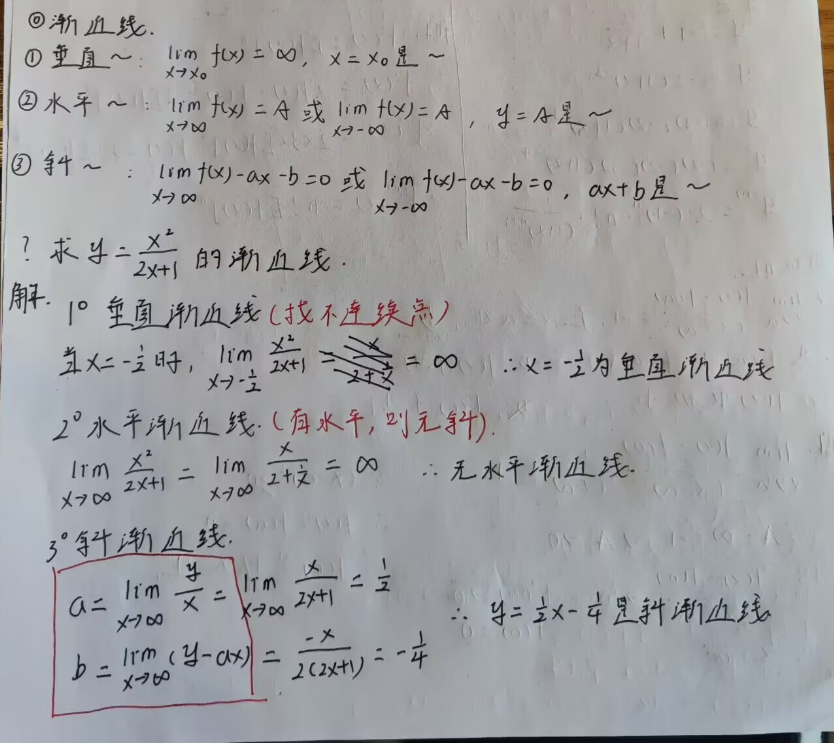 ⓪渐近线.
①垂直～: lim x→x₀ f(x)=∞, x=x₀是～
②水平～: lim x→∞ f(x)=A 或 lim x→-∞ f(x)=A, y=A是～
③斜～: lim x→∞ f(x)-ax-b=0 或 lim x→-∞ f(x)-ax-b=0, ax+b是～
? 求 y=x²/(2x+1) 的渐近线.
解. 1° 垂直渐近线(找不连续点)
当x=-1/2时, lim x→-1/2 x²/(2x+1) = x/(2+1/x) = ∞ ∴x=-1/2为垂直渐近线
2° 水平渐近线.(有水平,则无斜).
lim x→∞ x²/(2x+1) = lim x→∞ x/(2+1/x) = ∞ ∴无水平渐近线.
3° 斜渐近线.
a= lim x→∞ y/x = lim x→∞ x/(2x+1) = 1/2
∴ y=1/2x-1/4是斜渐近线
b= lim x→∞ (y-ax) = -x/(2(2x+1)) = -1/4